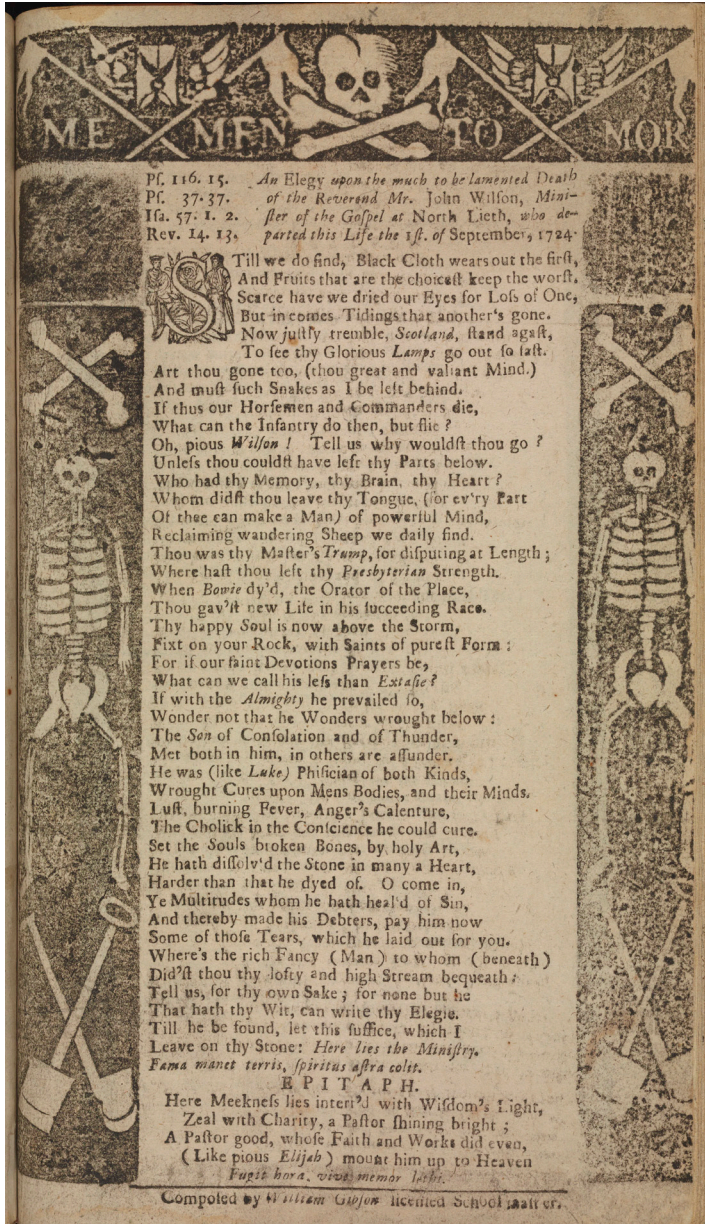 ME MEN TO MOR
Pſ. 116. 15. An Elegy upon the much to be lamented Death
Pſ. 37. 37. of the Reverend Mr. John Wilſon, Mini-
Iſa. 57. 1. 2. ſter of the Goſpel at North Lieth, who de-
Rev. 14. 13. parted this Life the 1ſt. of September, 1724.
STill we do find, Black Cloth wears out the firſt,
And Fruits that are the choiceſt keep the worſt.
Scarce have we dried our Eyes for Loſs of One,
But in comes Tidings that another's gone.
Now juſtly tremble, Scotland, ſtand agaſt,
To ſee thy Glorious Lamps go out ſo faſt.
Art thou gone too, (thou great and valiant Mind.)
And muſt ſuch Snakes as I be left behind.
If thus our Horſemen and Commanders die,
What can the Infantry do then, but flie ?
Oh, pious Wilſon ! Tell us why wouldſt thou go ?
Unleſs thou couldſt have left thy Parts below.
Who had thy Memory, thy Brain, thy Heart ?
Whom didſt thou leave thy Tongue, (for ev'ry Part
Of thee can make a Man) of powerful Mind,
Reclaiming wandering Sheep we daily find.
Thou was thy Maſter's Trump, for diſputing at Length ;
Where haſt thou left thy Presbyterian Strength.
When Bowie dy'd, the Orator of the Place,
Thou gav'ſt new Life in his ſucceeding Race.
Thy happy Soul is now above the Storm,
Fixt on your Rock, with Saints of pureſt Form :
For if our faint Devotions Prayers be,
What can we call his leſs than Extaſie ?
If with the Almighty he prevailed ſo,
Wonder not that he Wonders wrought below :
The Son of Conſolation and of Thunder,
Met both in him, in others are aſſunder.
He was (like Luke) Phiſician of both Kinds,
Wrought Cures upon Mens Bodies, and their Minds.
Luſt, burning Fever, Anger's Calenture,
The Cholick in the Conſcience he could cure.
Set the Souls broken Bones, by holy Art,
He hath diſſolv'd the Stone in many a Heart,
Harder than that he dyed of. O come in,
Ye Multitudes whom he hath heal'd of Sin,
And thereby made his Debters, pay him now
Some of thoſe Tears, which he laid out for you.
Where's the rich Fancy (Man) to whom (beneath)
Did'ſt thou thy lofty and high Stream bequeath :
Tell us, for thy own Sake ; for none but he
That hath thy Wit, can write thy Elegie.
Till he be found, let this ſuffice, which I
Leave on thy Stone: Here lies the Miniſtry.
Fama manet terris, ſpiritus aſtra colit.
EPITAPH.
Here Meekneſs lies interr'd with Wiſdom's Light,
Zeal with Charity, a Paſtor ſhining bright ;
A Paſtor good, whoſe Faith and Works did even,
(Like pious Elijah) mount him up to Heaven
Fugit hora, vive memor lethi.
Compoſed by William Gibſon licenſed School maſter.